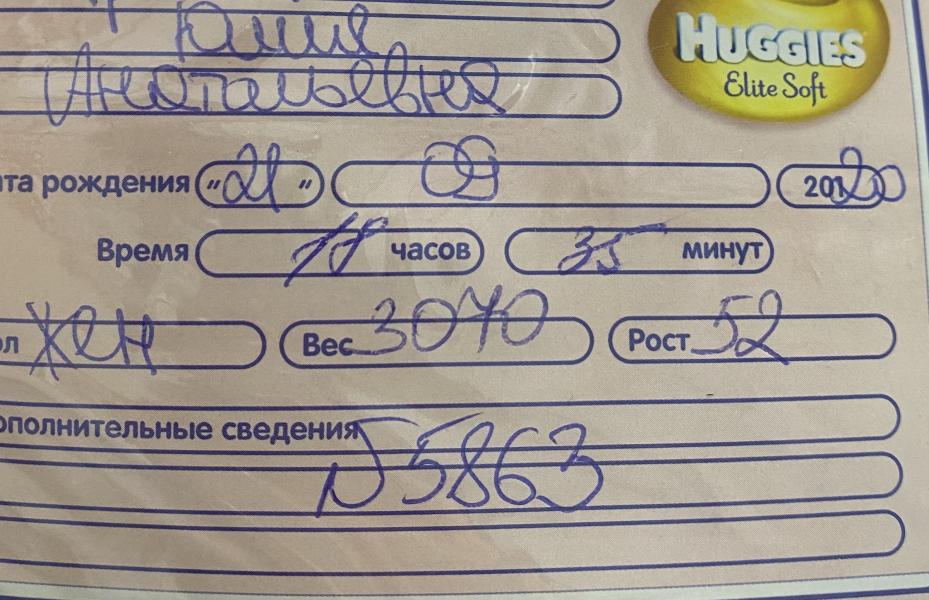 Юлия
HUGGIES
Elite Soft
Анатольевна
та рождения „21” 09 2020
Время 18 часов 35 минут
ол жен Вес 3070 Рост 52
ополнительные сведения
N 5863